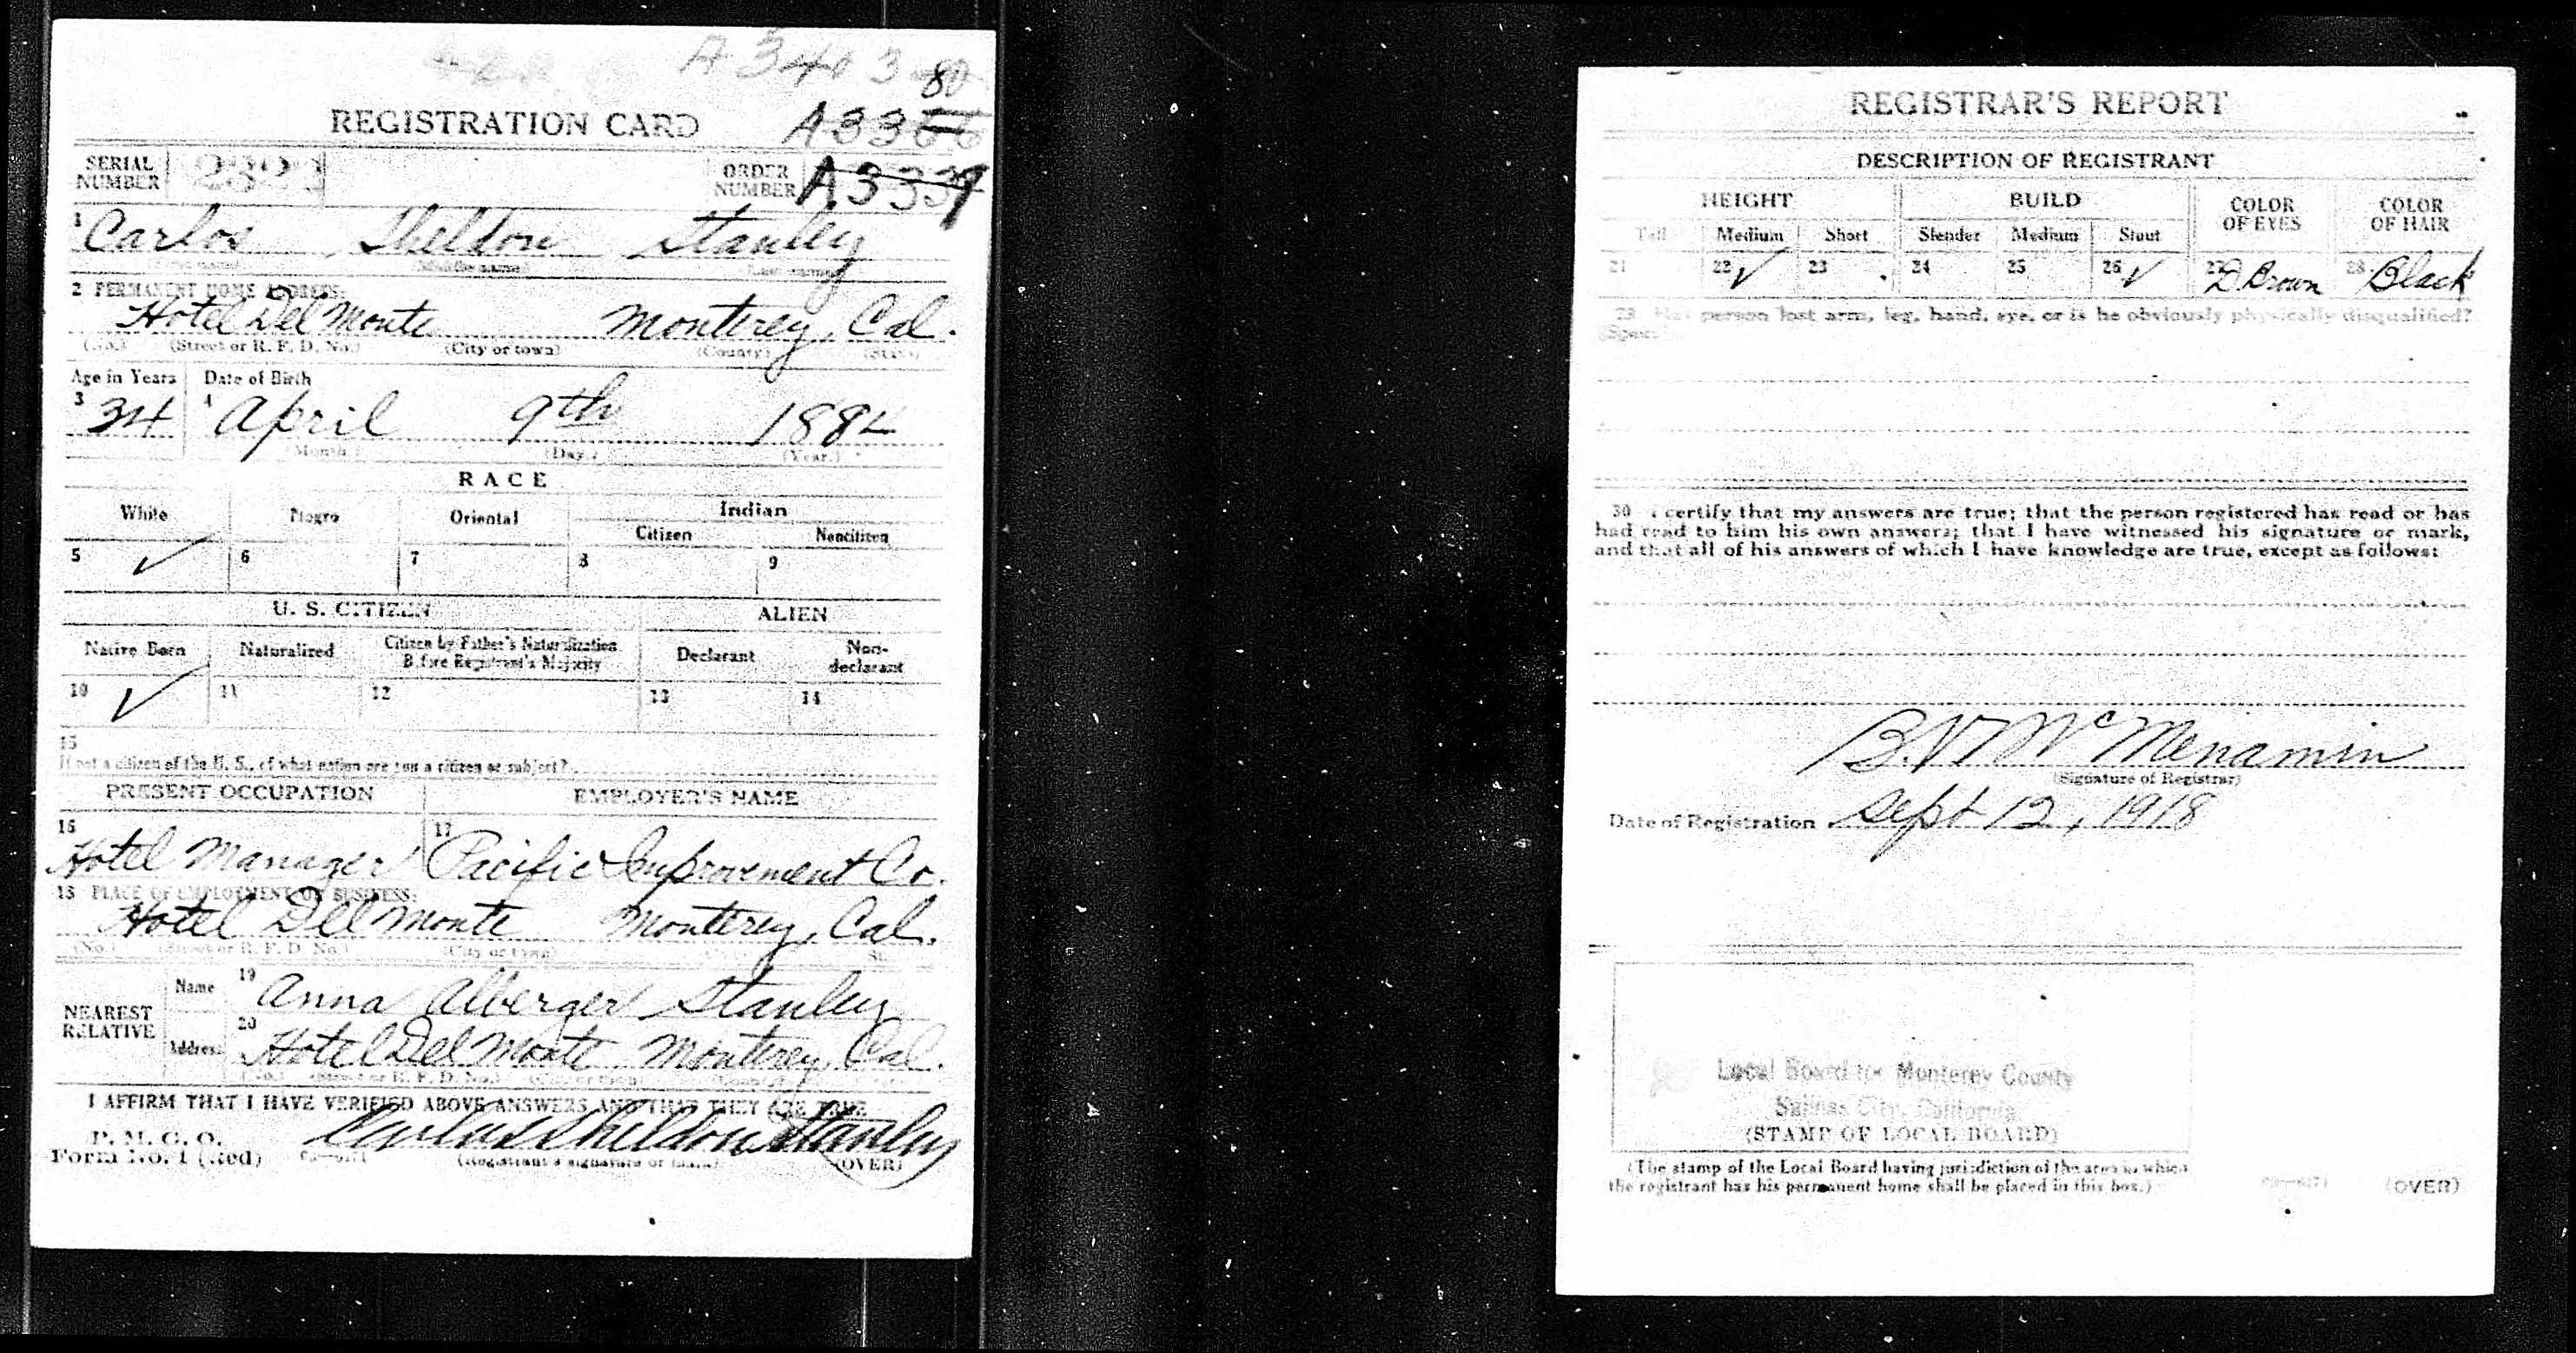 A3403
80
REGISTRATION CARD
A33
SERIAL NUMBER
ORDER NUMBER A3339
1 Carlos Sheldon Stanley
(Middle name) (Last name)
2 PERMANENT HOME ADDRESS:
Hotel Del Monte Monterey, Cal.
(No.) (Street or R. F. D. No.) (City or town) (County) (State)
Age in Years Date of Birth
3 34 4 April 9th 1884
(Month.) (Day.) (Year.)
RACE
White Negro Oriental Indian
Citizen Noncitizen
5 ✓ 6 7 8 9
U. S. CITIZEN ALIEN
Native Born Naturalized Citizen by Father's Naturalization Before Registrant's Majority Declarant Non-declarant
10 ✓ 11 12 13 14
15
If not a citizen of the U. S., of what nation are you a citizen or subject?
PRESENT OCCUPATION EMPLOYER'S NAME
16 Hotel Manager 17 Pacific Improvement Co.
18 PLACE OF EMPLOYMENT OR BUSINESS:
Hotel Del Monte Monterey, Cal.
(No.) (Street or R. F. D. No.) (City or town)
NEAREST RELATIVE
Name 19 Anna Alberger Stanley
Address 20 Hotel Del Monte Monterey, Cal.
(No.) (Street or R. F. D. No.) (City or town)
I AFFIRM THAT I HAVE VERIFIED ABOVE ANSWERS AND THAT THEY ARE TRUE
P. M. G. O.
Form No. 1 (Red) Carlos Sheldon Stanley
(Registrant's signature or mark) (OVER)
REGISTRAR'S REPORT
DESCRIPTION OF REGISTRANT
HEIGHT BUILD COLOR OF EYES COLOR OF HAIR
Tall Medium Short Slender Medium Stout
21 22 ✓ 23 24 25 26 ✓ 27 D Brown 28 Black
29 Has person lost arm, leg, hand, eye, or is he obviously physically disqualified?
30 I certify that my answers are true; that the person registered has read or has
had read to him his own answers; that I have witnessed his signature or mark,
and that all of his answers of which I have knowledge are true, except as follows:
B. V. McMenamin
(Signature of Registrar)
Date of Registration Sept 12, 1918
Local Board for Monterey County
Salinas City, California
(STAMP OF LOCAL BOARD)
(The stamp of the Local Board having jurisdiction of the area in which
the registrant has his permanent home shall be placed in this box.)
(OVER)